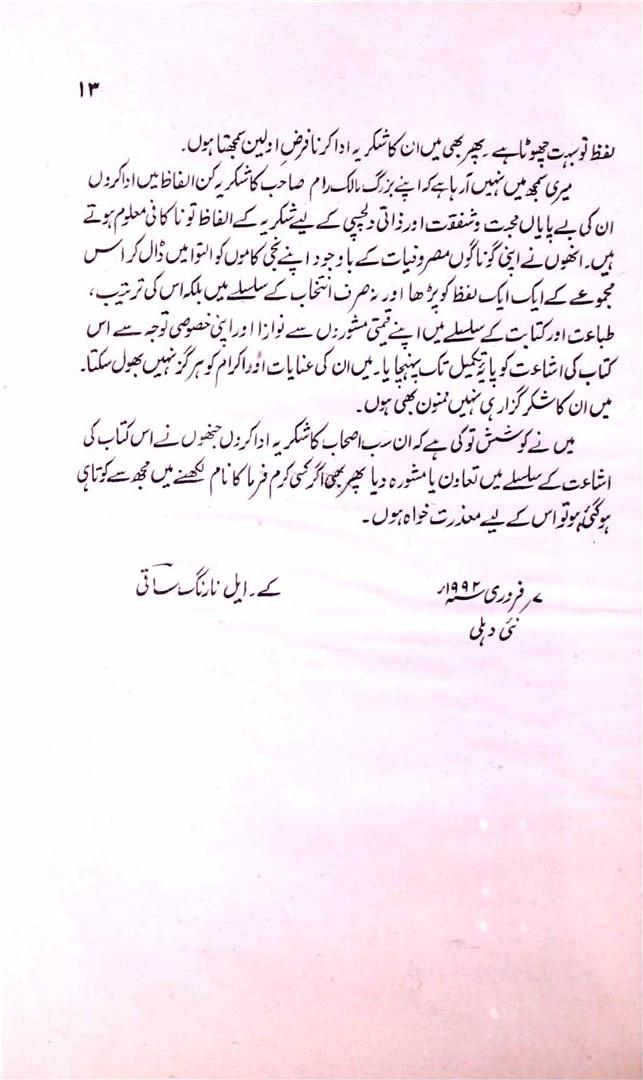 ۱۳
لفظ تو بہت چھوٹا ہے۔ پھر بھی میں ان کا شکریہ ادا کرنا فرضِ اولین سمجھتا ہوں۔
میری سمجھ میں نہیں آ رہا ہے کہ اپنے بزرگ مالک رام صاحب کا شکریہ کن الفاظ میں ادا کروں
ان کی بے پایاں محبت و شفقت اور ذاتی دلچسپی کے لیے شکریہ کے الفاظ تو ناکافی معلوم ہوتے
ہیں۔ انھوں نے اپنی گوناگوں مصروفیات کے باوجود اپنے نجی کاموں کو التوا میں ڈال کر اس
مجموعے کے ایک ایک لفظ کو پڑھا اور نہ صرف انتخاب کے سلسلے میں بلکہ اس کی ترتیب،
طباعت اور کتابت کے سلسلے میں اپنے قیمتی مشوروں سے نوازا اور اپنی خصوصی توجہ سے اس
کتاب کی اشاعت کو پایۂ تکمیل تک پہنچایا۔ میں ان کی عنایات اور اکرام کو ہرگز نہیں بھول سکتا۔
میں ان کا شکر گزار ہی نہیں ممنون بھی ہوں۔
میں نے کوشش تو کی ہے کہ ان سب اصحاب کا شکریہ ادا کروں جنھوں نے اس کتاب کی
اشاعت کے سلسلے میں تعاون یا مشورہ دیا پھر بھی اگر کسی کرم فرما کا نام لکھنے میں مجھ سے کوتاہی
ہو گئی ہو تو اس کے لیے معذرت خواہ ہوں۔
۷ فروری ۱۹۹۲ء کے۔ ایل نارنگ ساقی
نئی دہلی